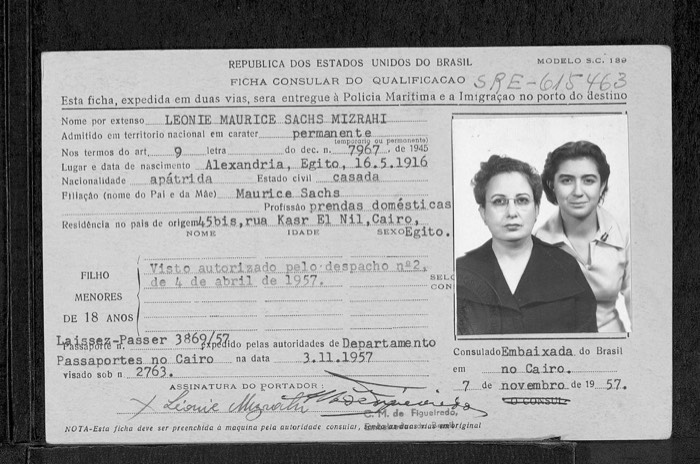 REPUBLICA DOS ESTADOS UNIDOS DO BRASIL
MODELO S.C. 139
FICHA CONSULAR DO QUALIFICACAO
SRE-615463
Esta ficha, expedida em duas vias, sera entregue à Policia Maritima e a Imigraçao no porto do destino
Nome por extenso LEONIE MAURICE SACHS MIZRAHI
Admitido em territorio nacional em carater permanente
(temporario ou permanente)
Nos termos do art. 9 letra do dec. n. 7967 de 1945
Lugar e data de nascimento Alexandria, Egito, 16.5.1916
Nacionalidade apátrida Estado civil casada
Filiação (nome do Pai e da Mãe) Maurice Sachs
Profissão prendas domésticas
Residência no pais de origem 45bis,rua Kasr El Nil,Cairo,
NOME IDADE SEXO Egito.
FILHO
MENORES
DE 18 ANOS
Visto autorizado pelo despacho nº2,
de 4 de abril de 1957.
SELO
CON
Laissez-Passer 3869/57
Passaporte n. expedido pelas autoridades de Departamento
Passaportes no Cairo na data 3.11.1957
visado sob n 2763.
Consulado Embaixada do Brasil
em no Cairo.
7 de novembro de 1957.
O CONSUL
ASSINATURA DO PORTADOR:
X Léonie Mizrahi
C. M. de Figueiredo,
NOTA-Esta ficha deve ser preenchida à maquina pela autoridade consular, em original